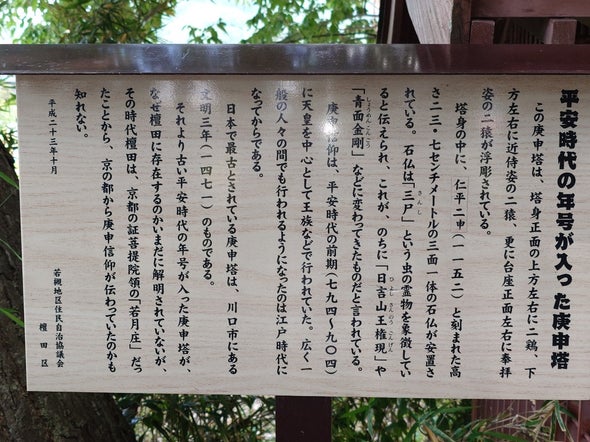 平安時代の年号が入った庚申塔
この庚申塔は、塔身正面の上方左右に二鶏、下
方左右に近侍姿の二猿、更に台座正面左右に奉拝
姿の二猿が浮彫されている。
塔身の中に、仁平二申(一一五二)と刻まれた高
さ二三・七センチメートルの三面一体の石仏が安置さ
れている。石仏は「三尸」という虫の霊物を象徴してい
ると伝えられ、これが、のちに「日吉山王権現」や
「青面金剛」などに変わってきたものだと言われている。
庚申信仰は、平安時代の前期(七九四～九〇四)
に天皇を中心として王族などで行われていた。広く一
般の人々の間でも行われるようになったのは江戸時代に
なってからである。
日本で最古とされている庚申塔は、川口市にある
文明三年(一四七一)のものである。
それより古い平安時代の年号が入った庚申塔が、
なぜ檀田に存在するのかいまだに解明されていないが、
その時代檀田は、京都の証菩提院領の「若月庄」だっ
たことから、京の都から庚申信仰が伝わっていたのかも
知れない。
平成二十三年十月
若槻地区住民自治協議会
檀田区